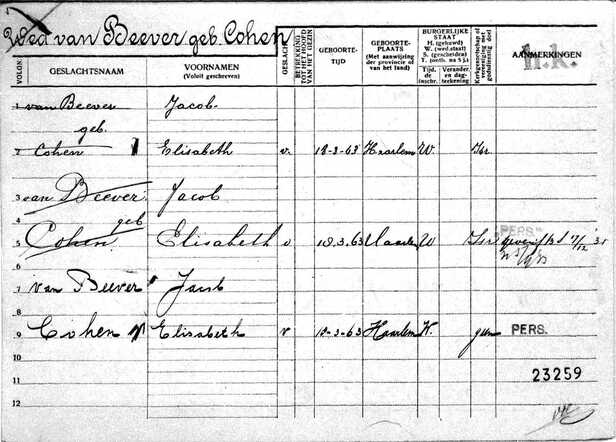 Wed van Beever geb. Cohen
VOLGNo.
GESLACHTSNAAM
VOORNAMEN
(Voluit geschreven)
GESLACHT
BETREKKING TOT HET HOOFD VAN HET GEZIN
GEBOORTE-
TIJD
GEBOORTE-
PLAATS
(Met aanwijzing der provincie of van het land)
BURGERLIJKE STAAT
H. (gehuwd)
W. (wed.staat)
S. (gescheiden)
T.
Tijd. de inschr.
Verander. en dag-teekening
AANMERKINGEN
h.k.
1 van Beever Jacob
geb.
2 Cohen Elisabeth v. 18-3-63 Haarlem W. Isr
3 van Beever Jacob
4 geb
5 Cohen Elisabeth v 18.3.63 Haarlem W Isr PERS.
6
7 van Beever Jacob
8
9 Cohen Elisabeth v 18-3-63 Haarlem W. geen PERS.
10
11 23259
12